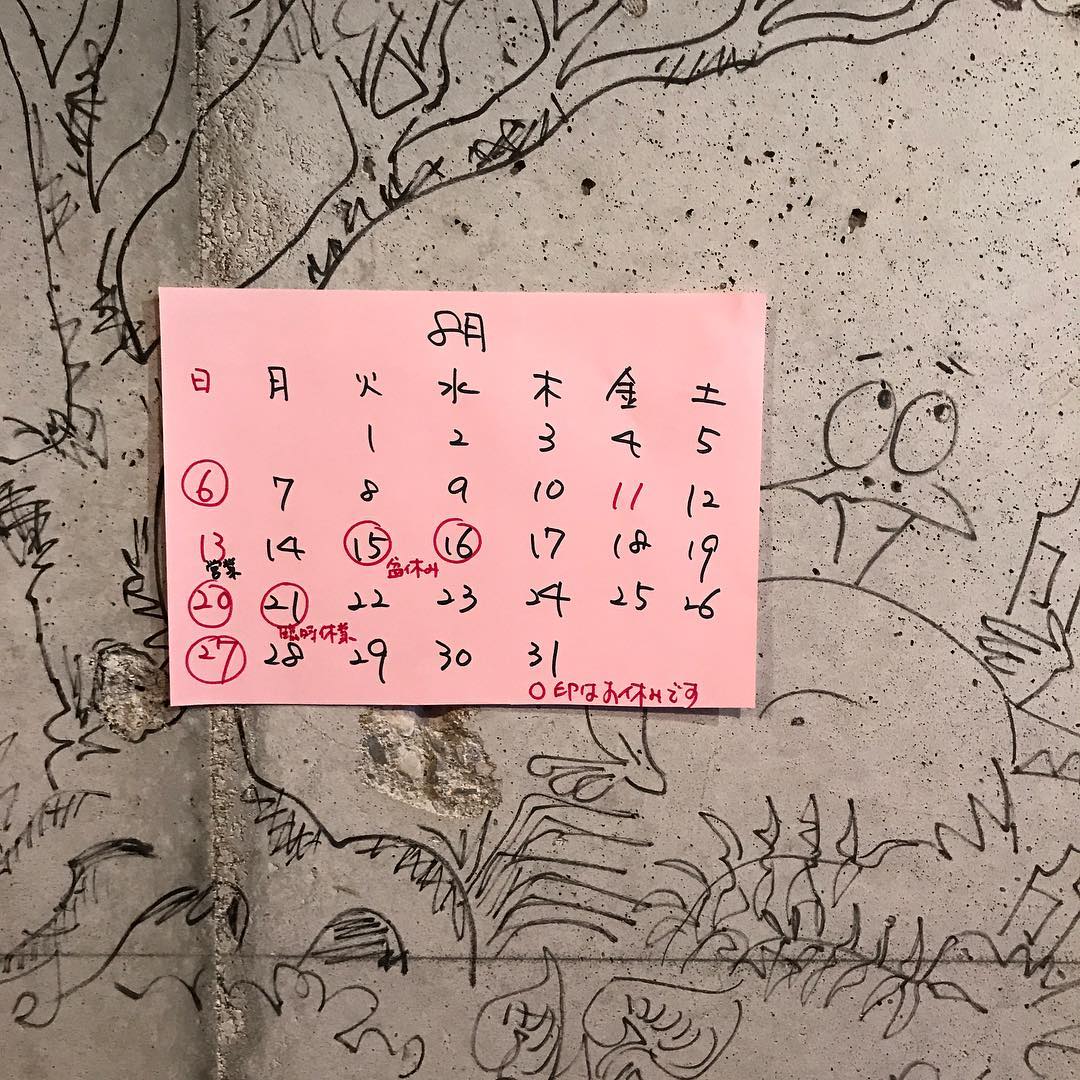 8月
日 月 火 水 木 金 土
1 2 3 4 5
6 7 8 9 10 11 12
13 14 15 16 17 18 19
営業 盆休み
20 21 22 23 24 25 26
臨時休業
27 28 29 30 31
○印はお休みです